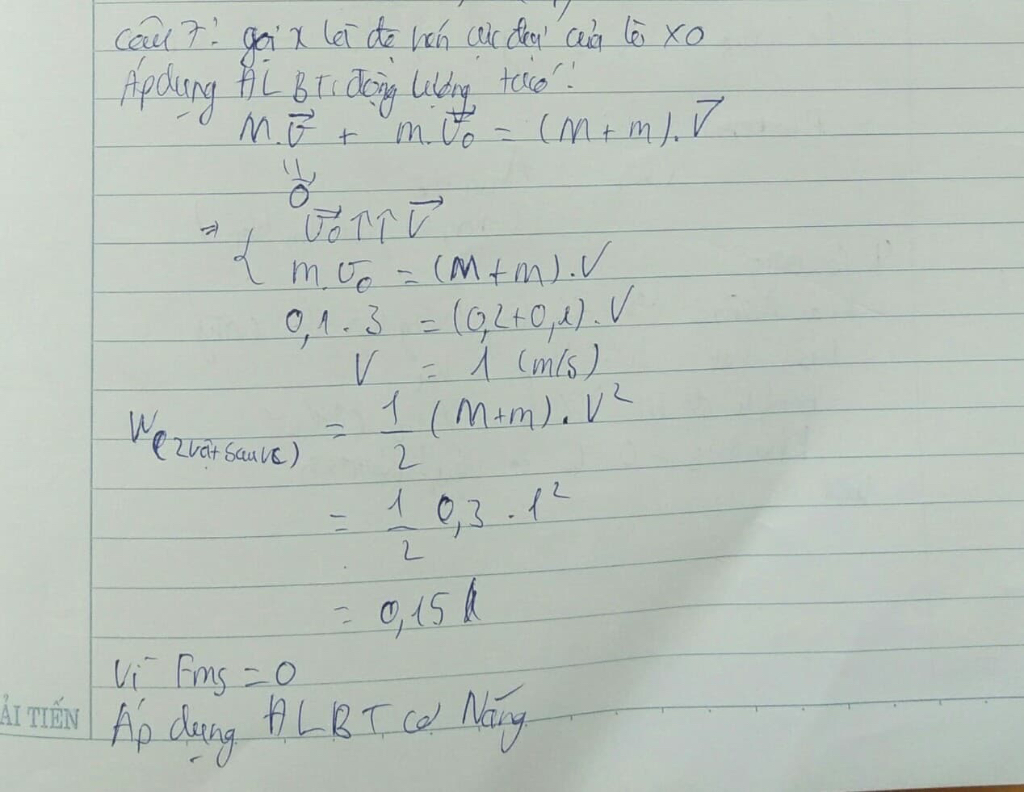 Câu 7: gọi x là độ nén cực đại của lò xo
Áp dụng ĐLBT động lượng ta có:
M.v⃗ + m.v⃗₀ = (M+m).V⃗
0⃗
⇒ { v⃗₀ ↑↑ V⃗
m.v₀ = (M+m).V
0,1.3 = (0,2+0,1).V
V = 1 (m/s)
W(2 vật sau vc) = 1/2 (M+m).V²
= 1/2 0,3.1²
= 0,15
Vì Fms = 0
Áp dụng ĐLBT cơ Năng
ẢI TIẾN